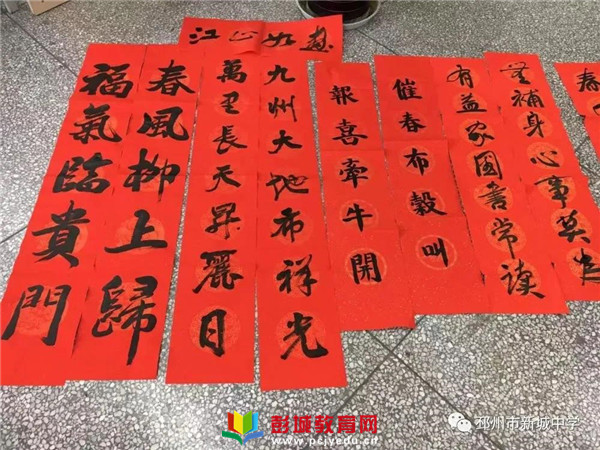 江山如畫
春
無補身心事莫
有益家國書常讀
催春布穀叫
報喜牽牛開
九州大地布祥光
萬里長天昇麗日
春風柳上歸
福氣臨貴門
彭城教育网
www.pcjyedu.cn
邳州市新城中学